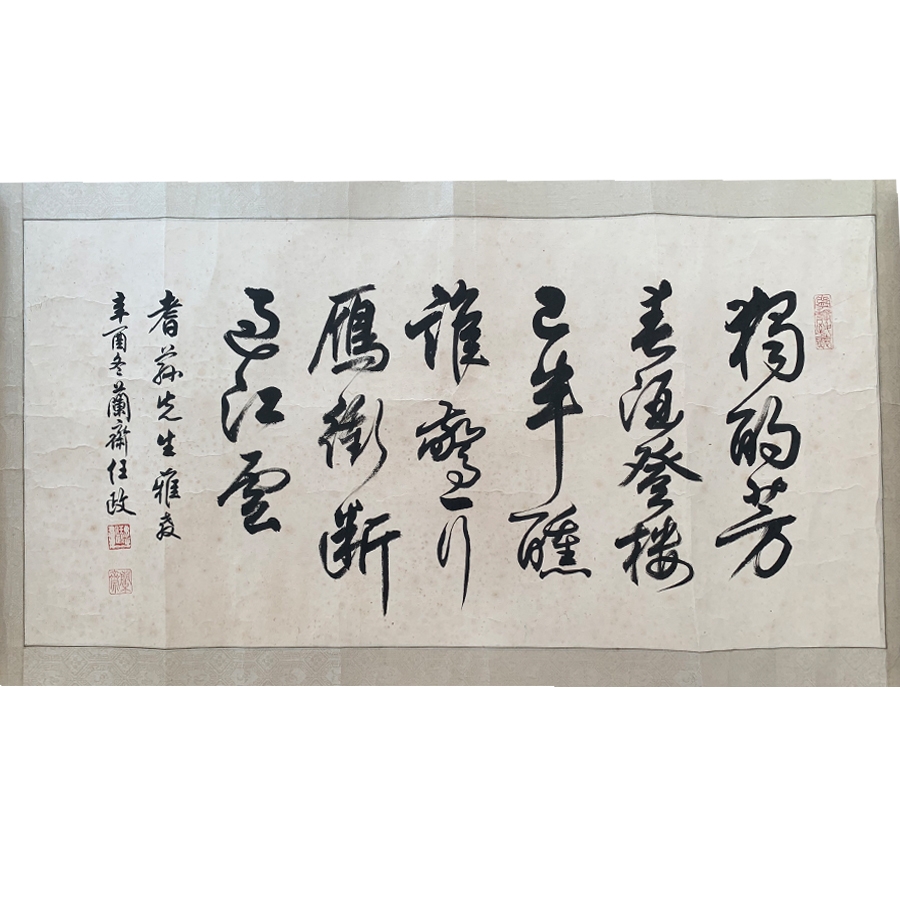 獨酌芳
春酒登樓
已半醺
誰驚一行
雁衝斷
過江雲
耆蓀先生雅教
辛酉冬蘭齋任政